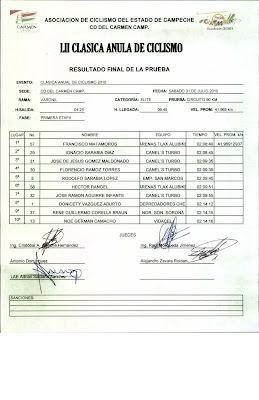 ASOCIACION DE CICLISMO DEL ESTADO DE CAMPECHE
CD DEL CARMEN CAMP.
CARMEN
LII CLASICA ANULA DE CICLISMO
RESULTADO FINAL DE LA PRUEBA
EVENTO: CLASICA ANUAL DE CICLISMO 2010
SEDE: CD DEL CARMEN CAMP. FECHA: SABADO 31 DE JULIO 2010
RAMA: VARONIL CATEGORÍA: ELITE PRUEBA: CIRCUITO 90 KM
H.SALIDA: 04:25 H. LLEGADA: 06:40 VEL. PROM:
FASE: PRIMERA ETAPA
LUGAR No. NOMBRE EQUIPO TIEMPO VEL. PROM. k/h
1° 57 FRANCISCO MATAMOROS 02:08:40
2° 29 IGNACIO SARABIA DIAZ CANEL'S TURBO
3° 31 JOSE DE JESUS GOMEZ MALDONADO CANEL'S TURBO 02:09:35
4° 30 FLORENCIO RAMOZ TORRES CANEL'S TURBO 02:09:35
5° 8 RODOLFO SARABIA LOPEZ EMP. SAN MARCOS 02:09:45
6° 58 HECTOR RANGEL 02:09:51
7° 32 JOSE RAMON AGUIRRE INFANTE CANEL'S TURBO
8° 1 DONICETY VAZQUEZ ABURTO DEPREDADORES CHE 02:14:12
9° 37 RENE GUILLERMO CORELLA BRAUN NOR. SON. SORONA
10° 13 NOE GERMAN CAMACHO VIDACEL
JUECES
Ing. Cristóbal A. Hernández Ing. Raúl Jiménez
Antonio Alejandro Zavala Roldan
LAE Adrian Sánchez
SANCIONES: